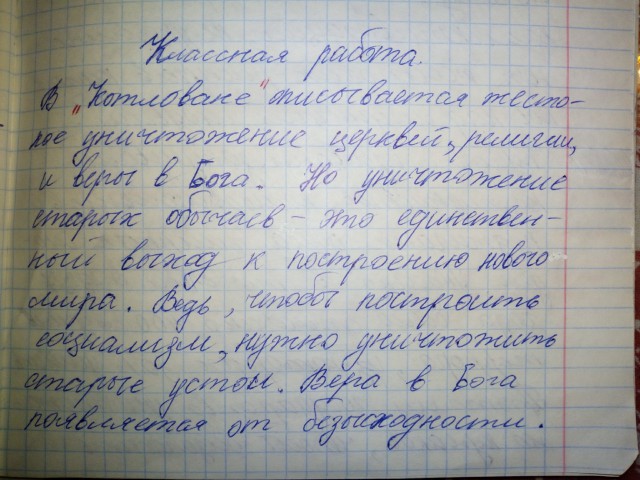 Классная работа.
В "Котловане" описывается жесто-
кое уничтожение церквей, религии,
и веры в Бога. Но уничтожение
старых обычаев - это единствен-
ный выход к построению нового
мира. Ведь, чтобы построить
социализм, нужно уничтожить
старые устои. Вера в Бога
появляется от безысходности.